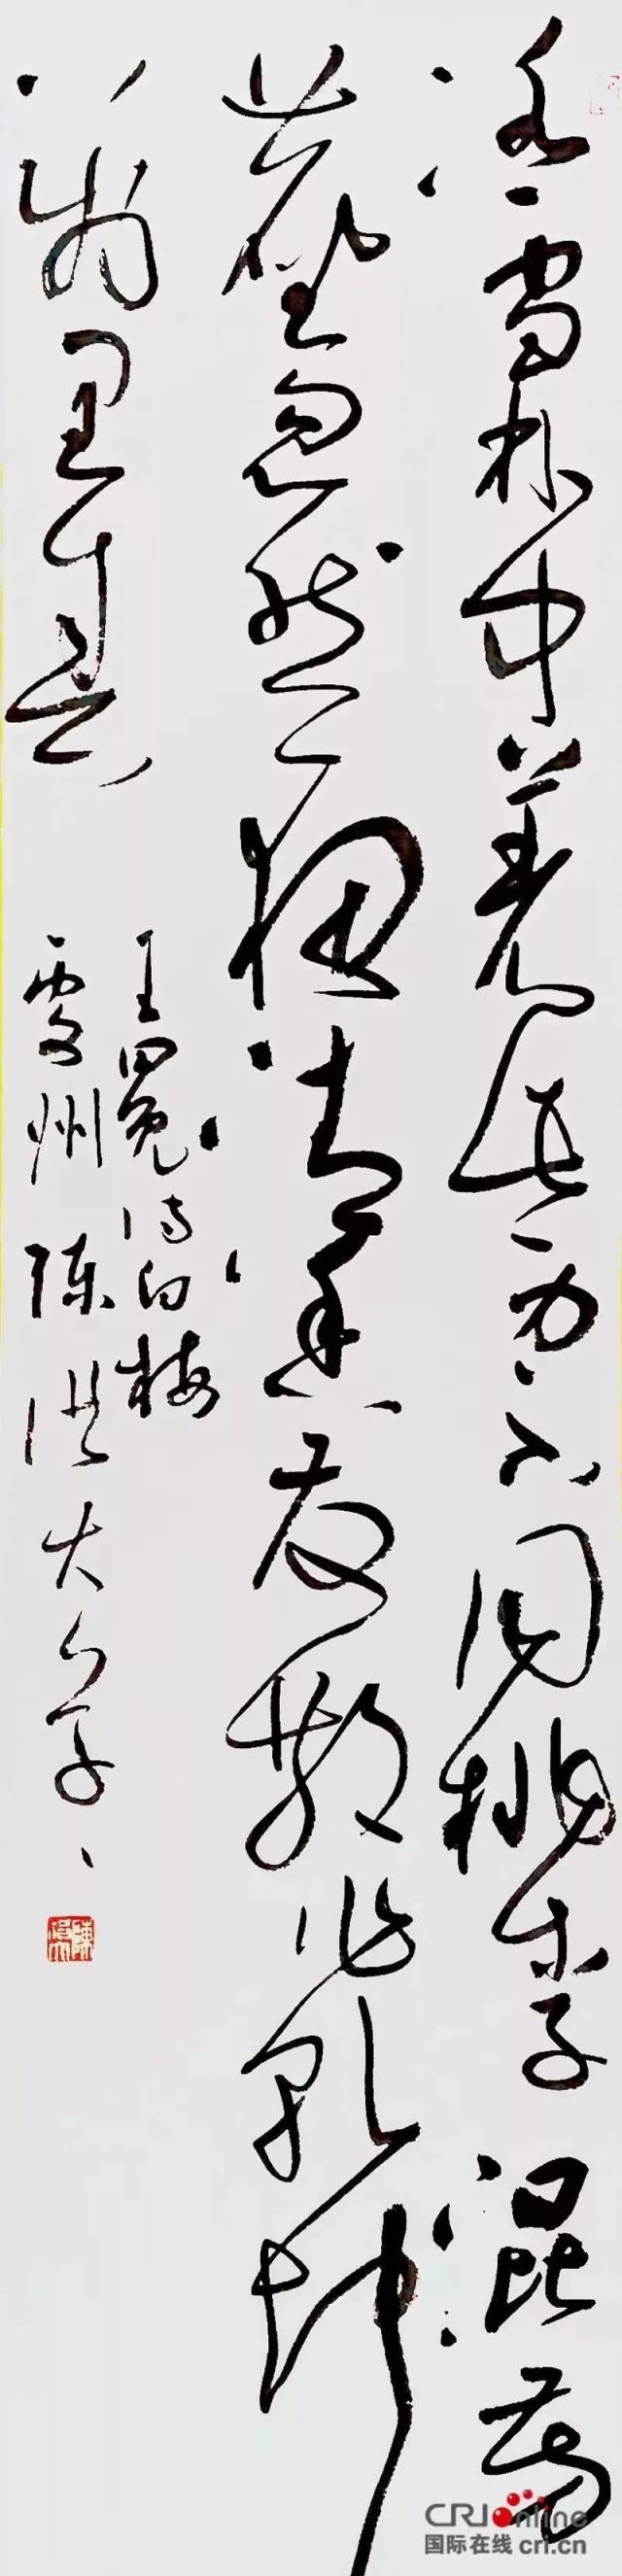 冰雪林中著此身不同桃李混芳
塵忽然一夜清香發散作乾坤
萬里春
王冕詩白梅
虔州陳
CRI online
国际在线 cri.cn